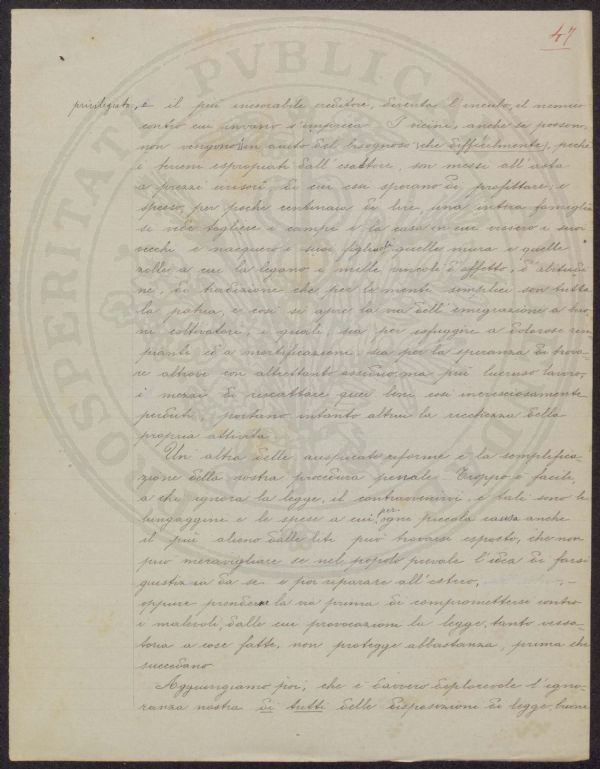 47
privilegiato, e il più inesorabile creditore, diventa l'incubo, il nemico
contro cui invano s'impreca. I vicini, anche se possono,
non vengono in aiuto del bisognoso (che difficilmente), perchè
i terreni espropriati dall'esattore, son messi all'asta
a prezzi irrisori di cui essi sperano di profittare; e
spesso, per poche centinaia di lire, una intera famiglia
si vede togliere i campi e la casa in cui vissero i suoi
vecchi e nacquero i suoi figli, quelle mura e quelle
zolle a cui la legano i mille vincoli d'affetto, d'abitudi
ne, di tradizione che per le menti semplici son tutta
la patria, e così si apre la via dell'emigrazione a buo
ni coltivatori, i quali, sia per isfuggire a dolorose rim
pianti ed a mortificazioni, sia per la speranza di trova
re altrove con altrettanto assiduo, ma più lucroso lavoro,
i mezzi di riscattare quei beni così incresciosamente
perduti, portano intanto altrui la ricchezza della
propria attività.
Un'altra delle auspicate riforme è la semplifica
zione della nostra procedura penale. Troppo è facile,
a chi ignora la legge, il contravvenirvi, e tali sono le
lungaggini e le spese a cui per ogni piccola causa anche
il più alieno dalle liti può trovarsi esposto, che non
può meravigliare se nel popolo prevale l'idea di farsi
giustizia da se e poi riparare all'estero,
oppure prendere la via prima di compromettersi contro
i malevoli, dalle cui provocazioni la legge, tanto vessa
toria a cose fatte, non protegge abbastanza, prima che
succedano.
Aggiungiamo poi, che è davvero deplorevole l'igno
ranza nostra di tutti delle disposizioni di legge, buone
PROSPERITATI PVBLICAE